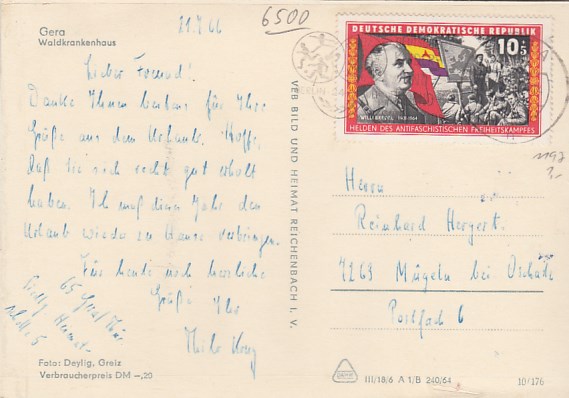 Gera
Waldkrankenhaus
21.7.66
6500
Lieber Freund!
Danke Ihnen bestens für Ihre
Grüße aus dem Urlaub. Hoffe,
daß Sie sich recht gut erholt
haben. Ich muß dies Jahr den
Urlaub wieder zu Hause verbringen.
Für heute noch herzliche
Grüße Ihr
65 Gera
Foto: Deylig, Greiz
Verbraucherpreis DM -,20
VEB BILD UND HEIMAT REICHENBACH I. V.
DEUTSCHE DEMOKRATISCHE REPUBLIK
10+5
WILLI BREDEL 1901-1964
HELDEN DES ANTIFASCHISTISCHEN FREIHEITSKAMPFES
1197
Herrn
Reinhard Hergert.
7263 Mügeln bei Oschatz
Postfach 6
III/18/6 A 1/B 240/64
10/176